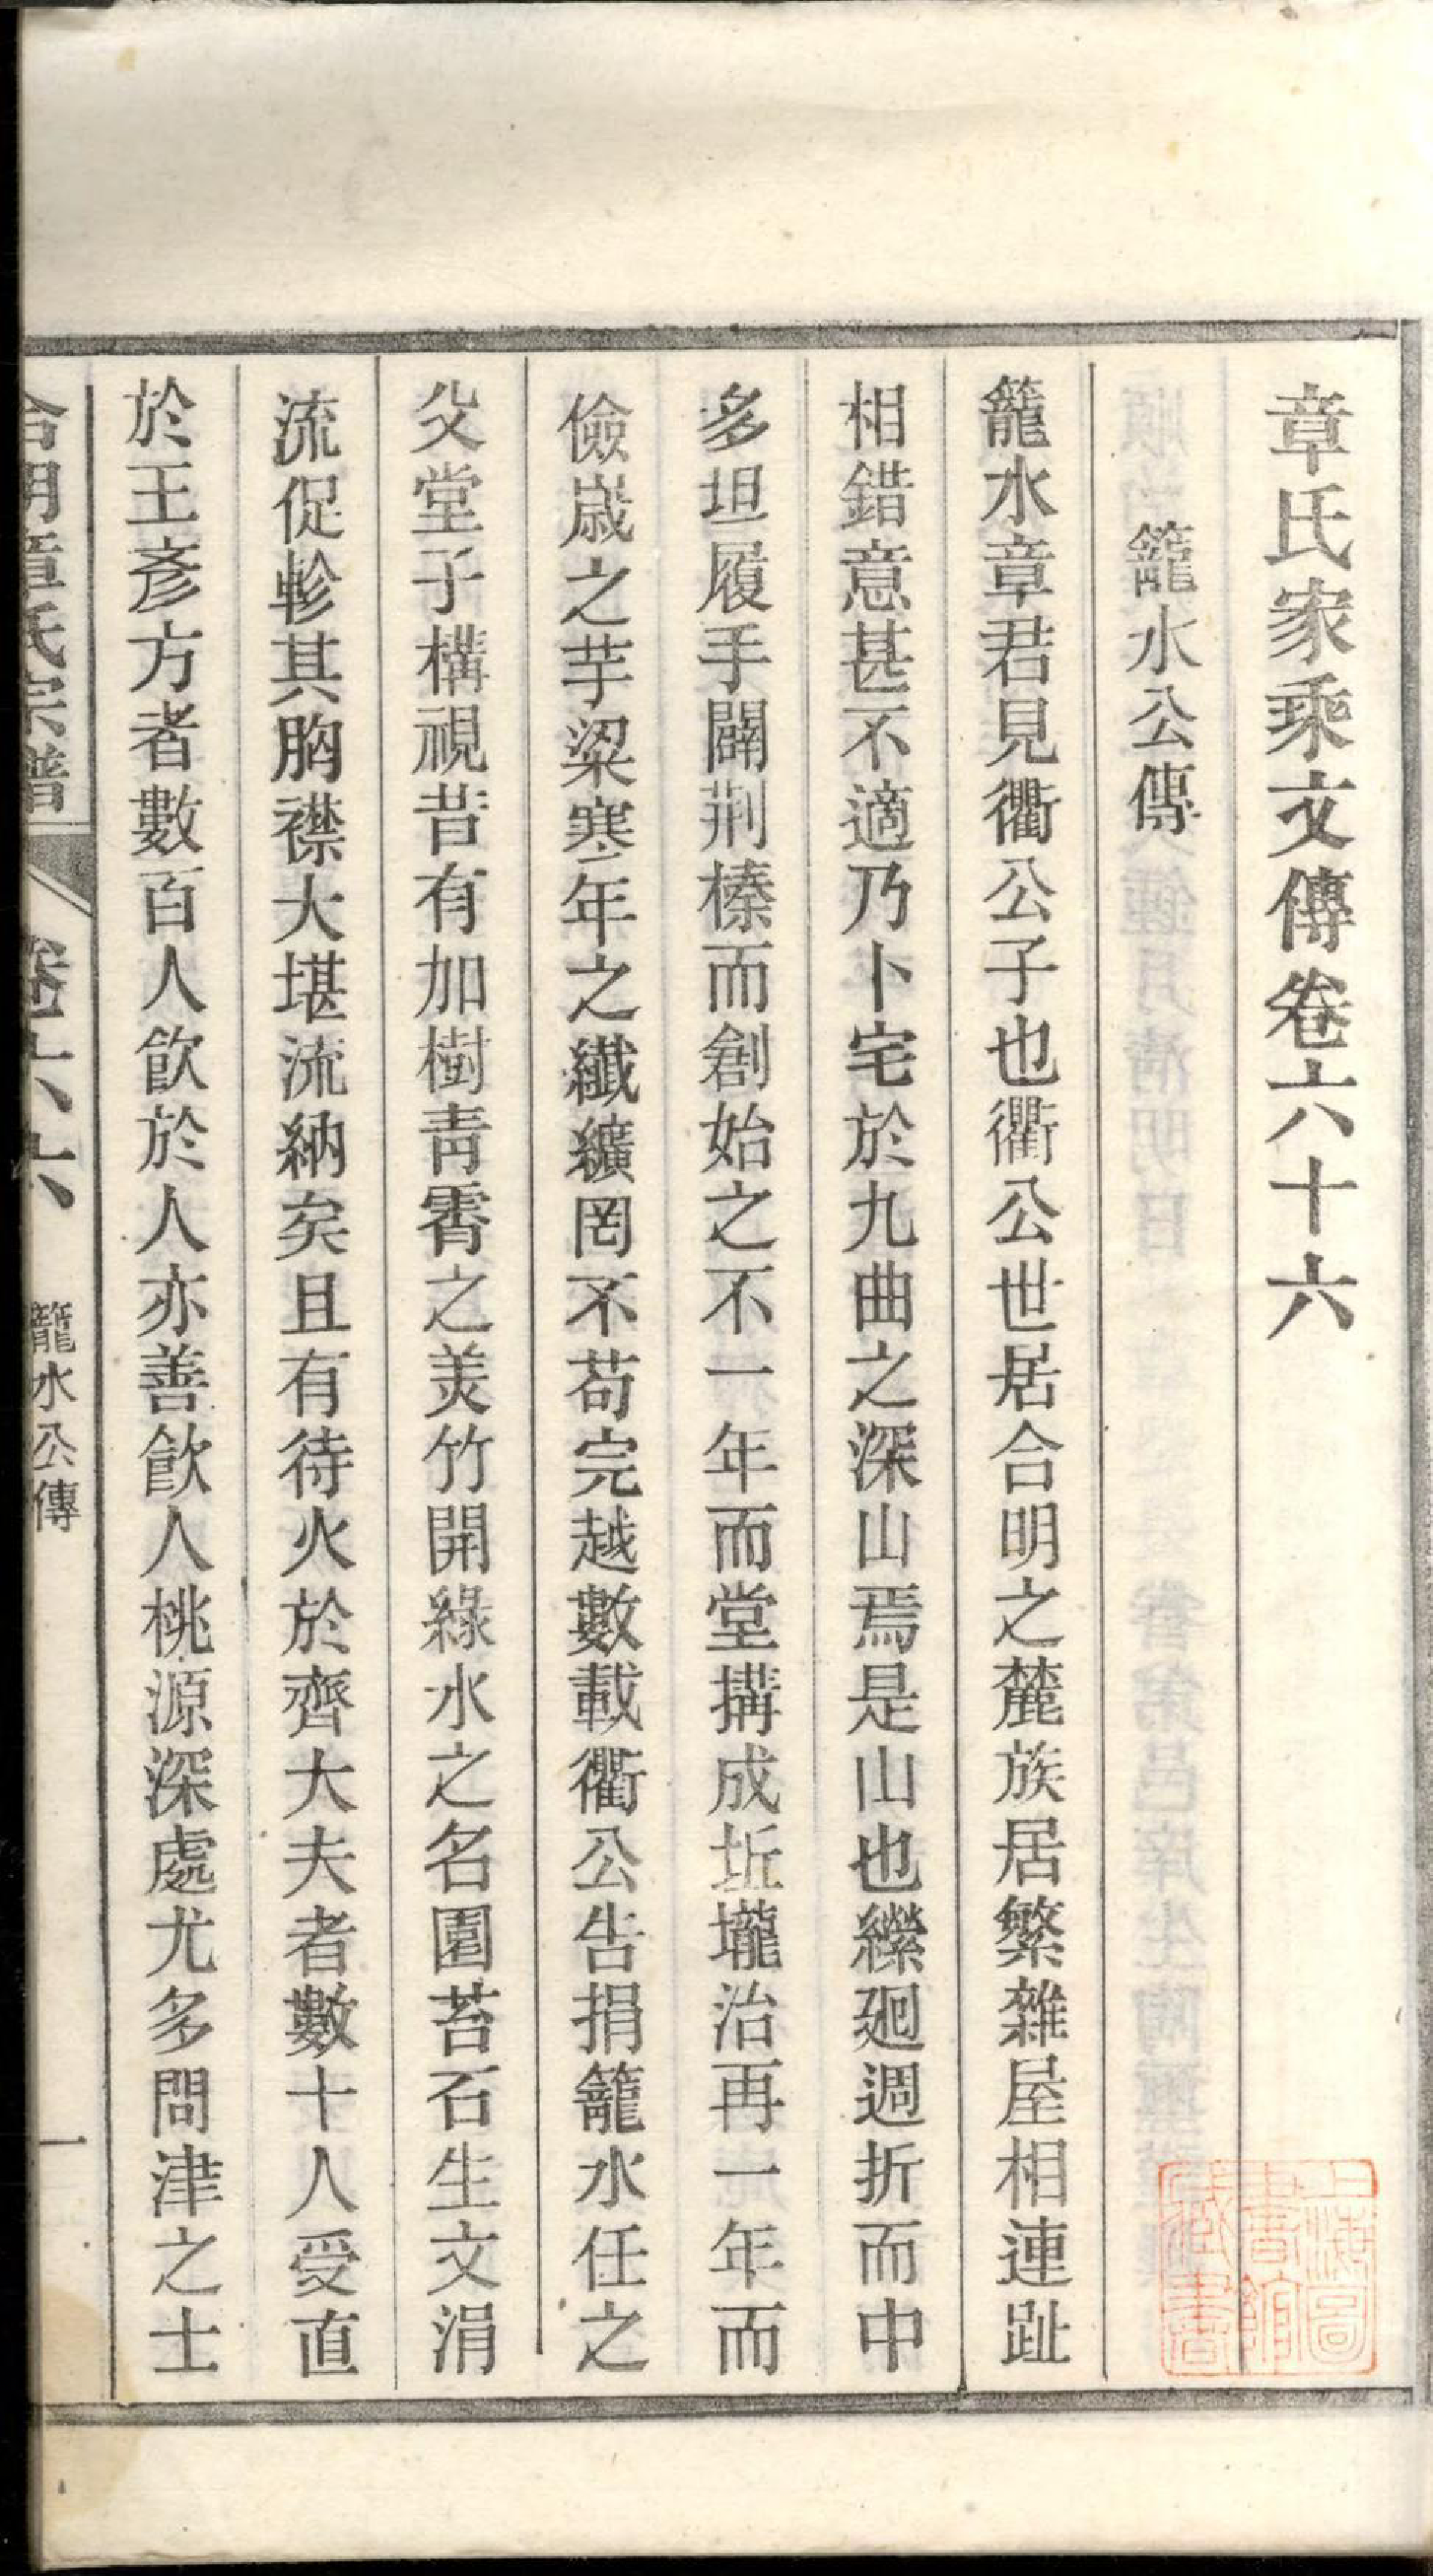 章氏家乘文傳卷六十六
籠水公傳
籠水章君見衢公子也衢公世居合明之麓族居繁雜屋相連趾
相錯意甚不適乃卜宅於九曲之深山焉是山也縈廻週折而中
多坦履手闢荆榛而創始之不一年而堂搆成坵壠治再一年而
儉歲之芋粱寒年之纖纊罔不苟完越數載衢公告捐籠水任之
父堂子構視昔有加樹靑霄之美竹開綠水之名園苔石生文涓
流促軫其胸襟大堪流納矣且有待火於齊大夫者數十人受直
於王彥方者數百人飮於人亦善飮人桃源深處尤多問津之士
合明章氏宗譜 卷六六 籠水公傳 一
上海圖書館藏書